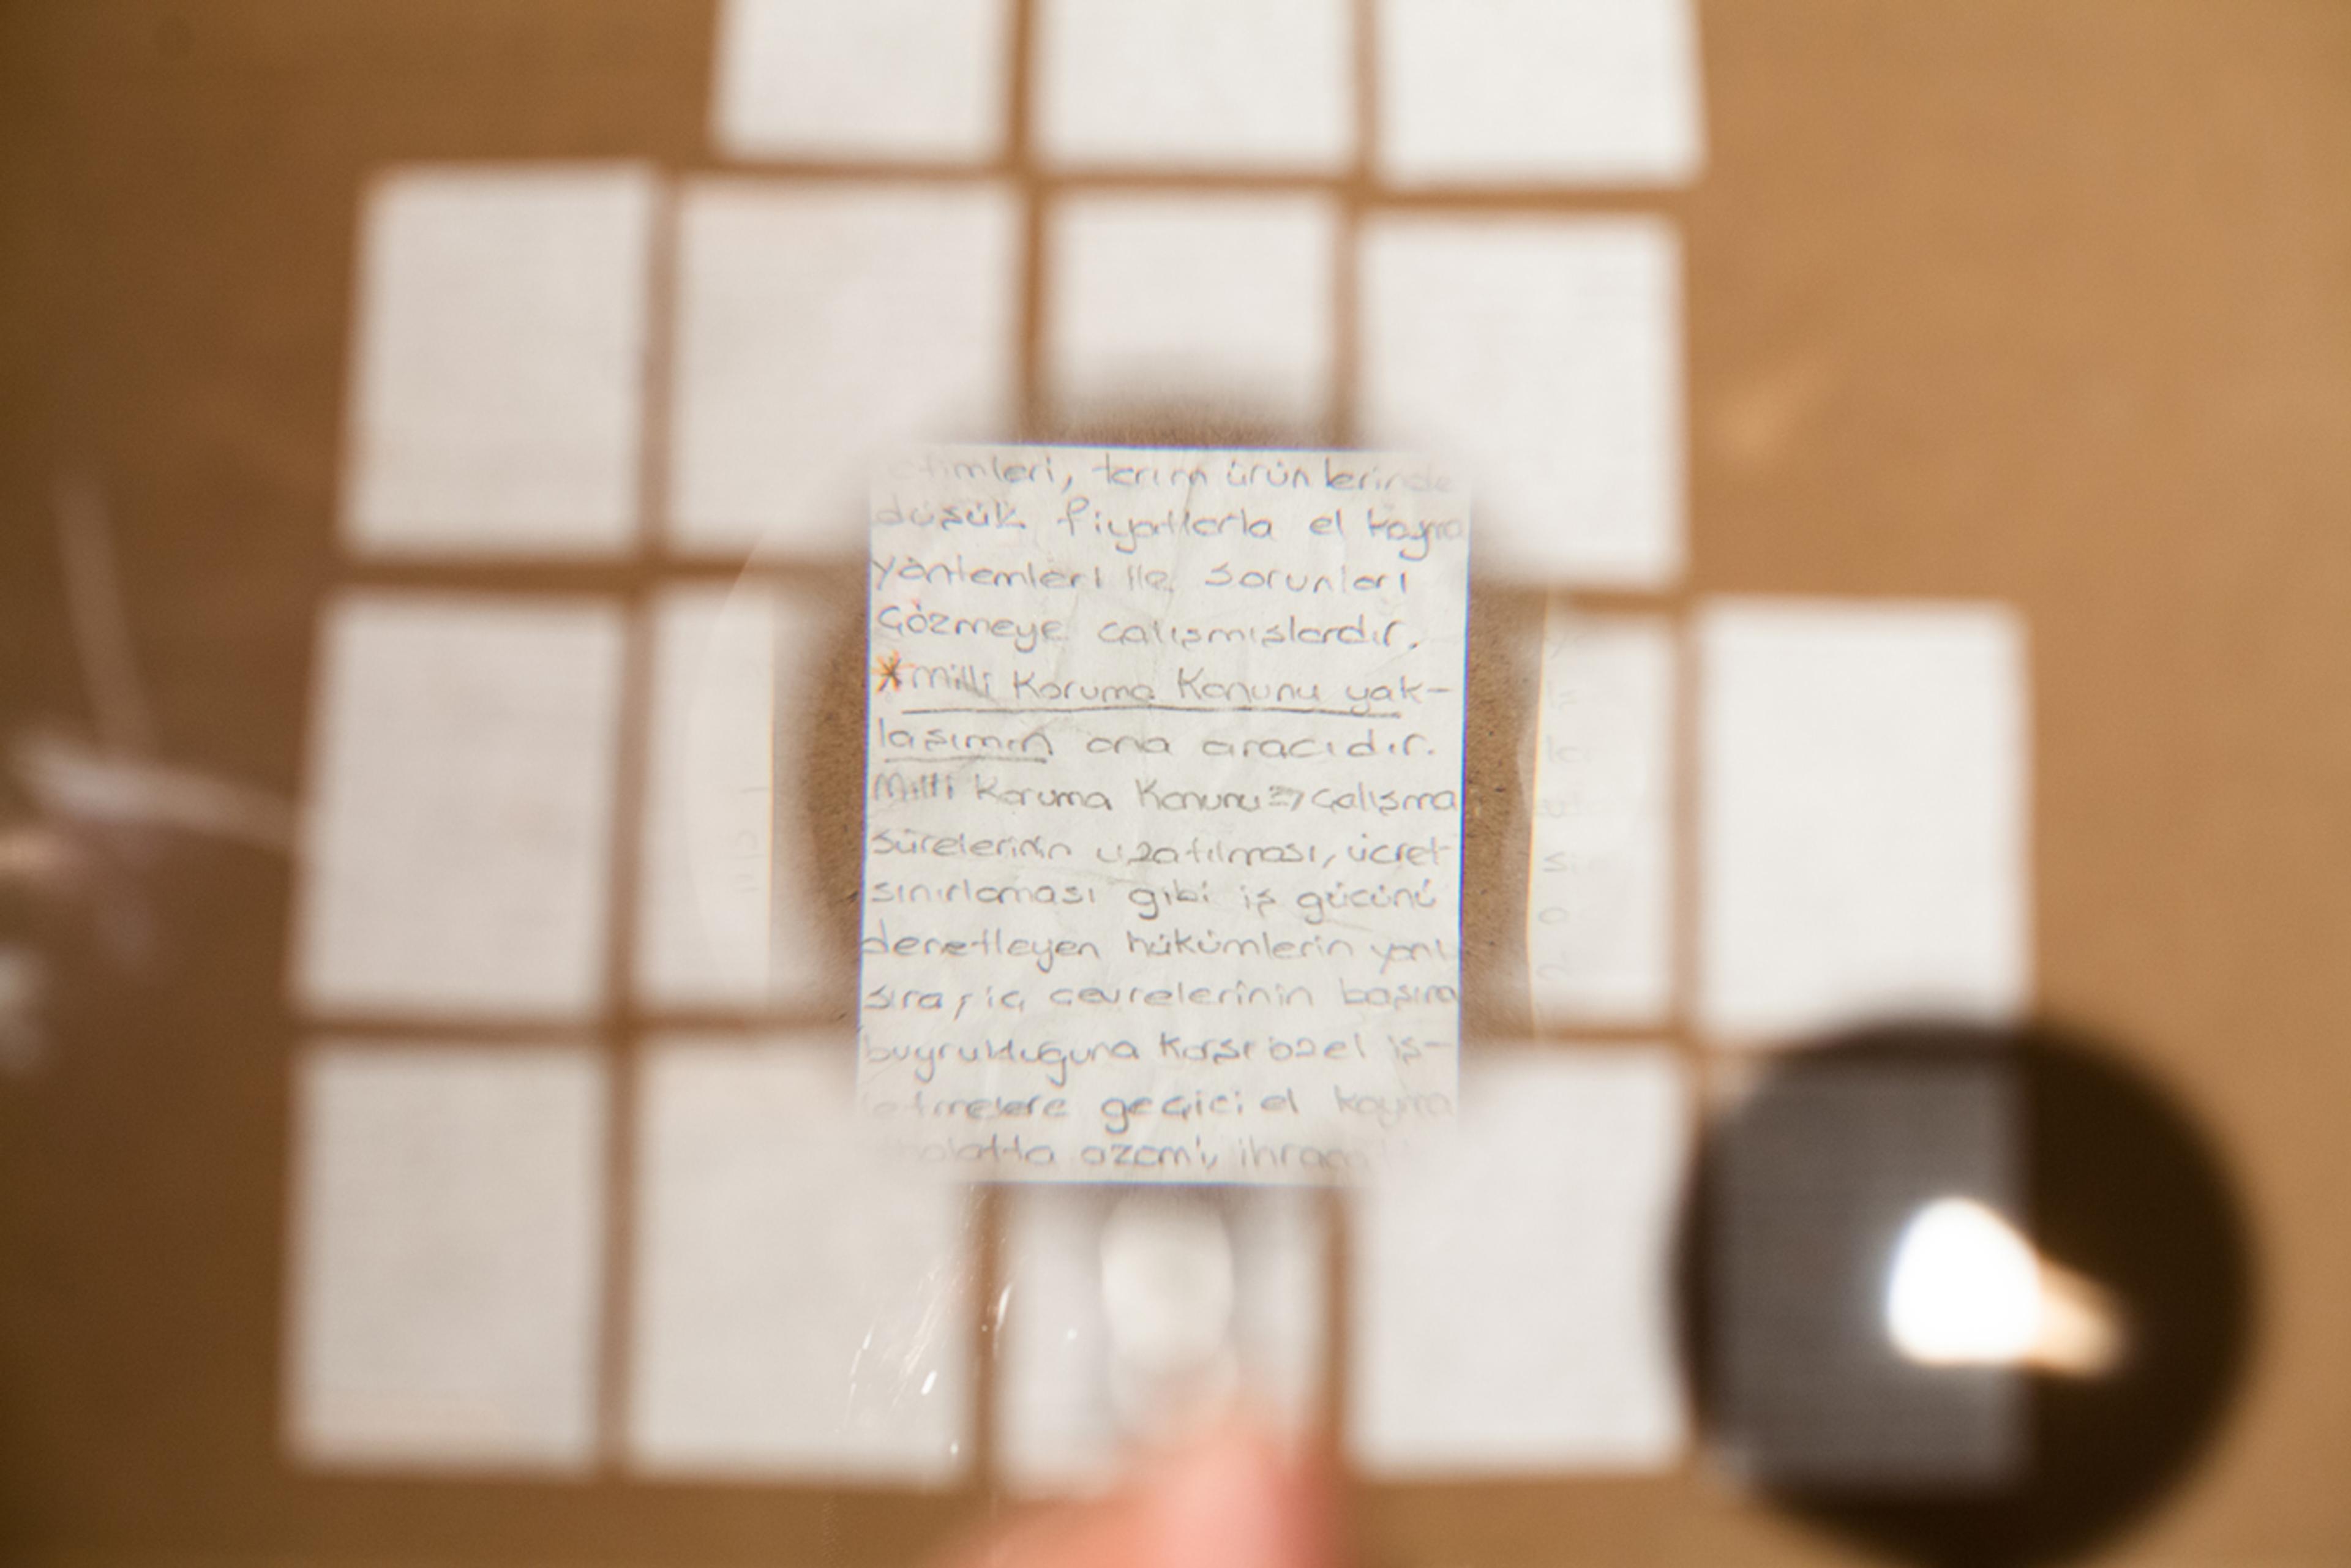 etimleri, tarım ürünlerinde
düşük fiyatlarla el koyma
yöntemleri ile sorunları
Çözmeye çalışmışlardır.
*Milli Koruma Kanunu yak-
laşımın ana aracıdır.
Milli Koruma Kanunu => çalışma
Sürelerinin uzatılması, ücret
sınırlaması gibi iş gücünü
denetleyen hükümlerin yanı
sıra, iç çevrelerinin başına
buyrukluğuna karşı özel iş-
letmelere geçici el koyma
azami, ihraç